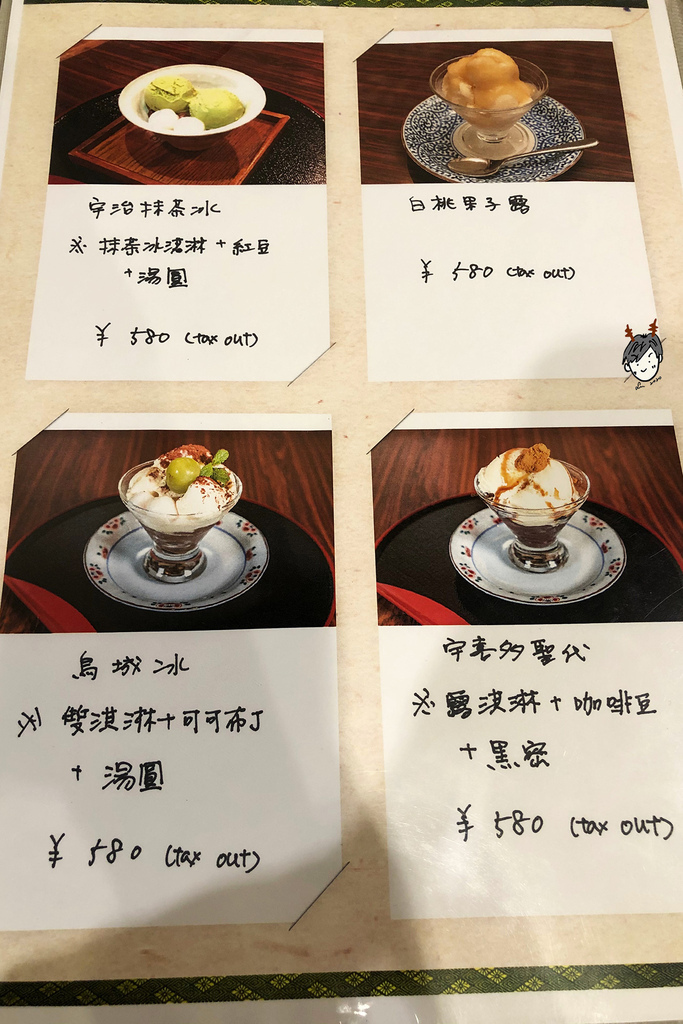 宇治抹茶冰
※ 抹茶冰淇淋+紅豆
+湯圓
¥ 580 (tax out)
白桃果子露
¥ 580 (tax out)
烏城冰
※ 雙淇淋+可可布丁
+ 湯圓
¥ 580 (tax out)
宇喜多聖代
※ 露淇淋+咖啡豆
+黑密
¥ 580 (tax out)